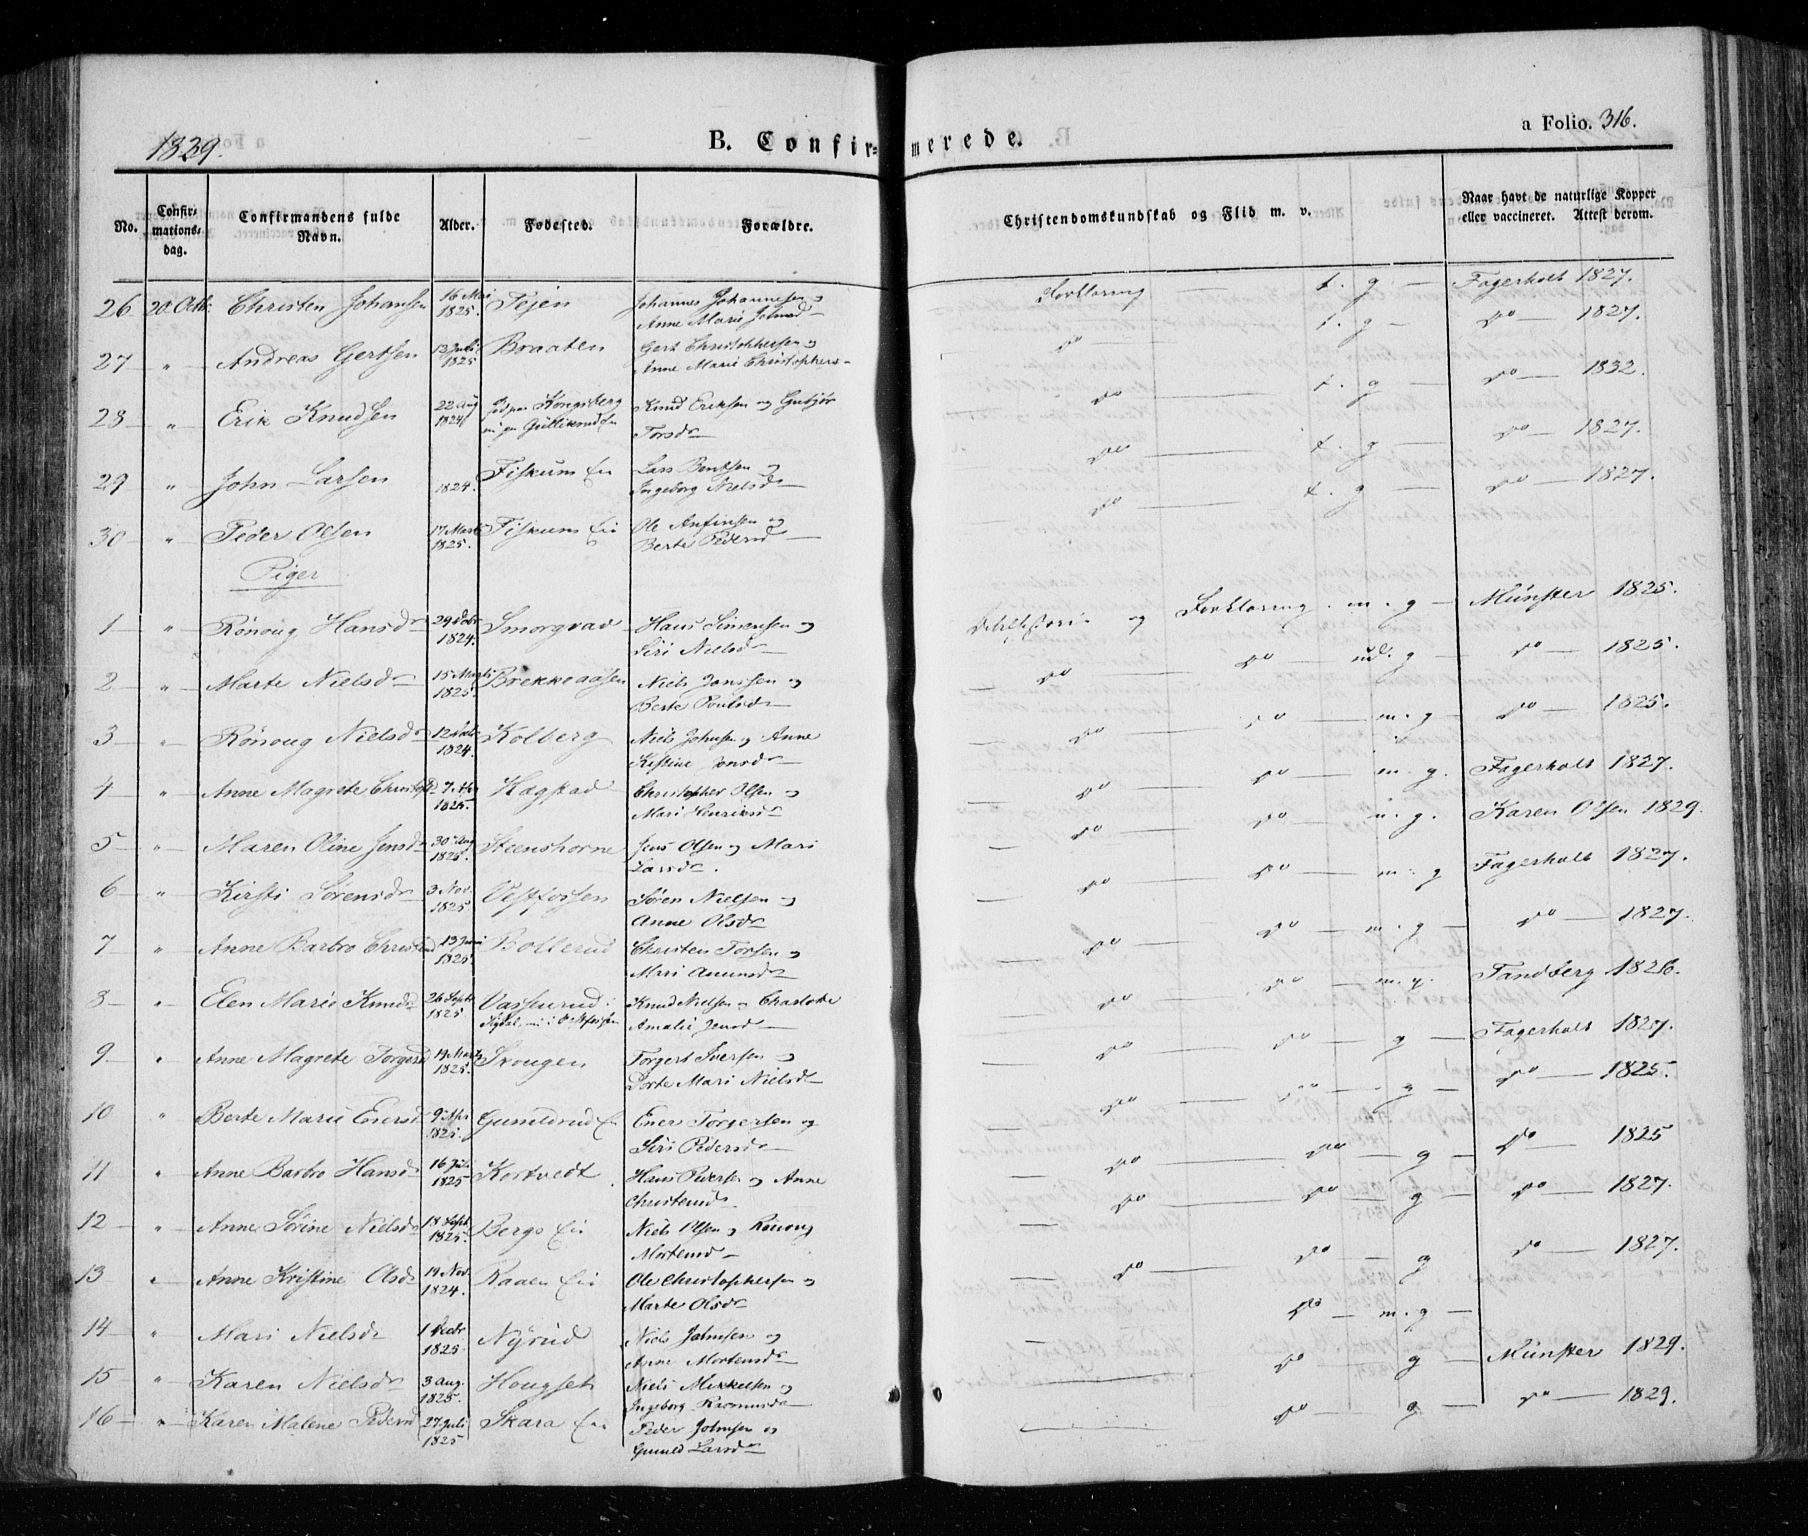 1839.
B. Confir- merede.
a Folio. 316.
No.
Confir-
mations-
dag.
Confirmandens fulde
Navn.
Alder.
Fødested.
Forældre.
Christendomskundskab og Flid m. v.
Naar havt de naturlige Kopper
eller vaccineret. Attest derom.
26 20 Octb. Christen Johansen 16 Mai 1825. Tejen Johannes Johannesen og Forklaring — t. g — Fagerholt 1827.
Anne Marie
27 " Andreas Gertsen 13 Juli 1825 Braaten Gert Christophersen og do — t. g — do — 1827.
Anne Marie Christophers
28 " Erik Knudsen 22 Aug 1824 Kongsberg Knud Eriksen og Gubjør do — t. g — do — 1832.
Torsd
29 " John Larsen 1824. Fiskum Ei Lars Bentsen og do — t. g — do — 1827.
Ingeborg Nielsd
30 " Peder Olsen 17 Marts 1825. Fiskum Ei Ole Anfinsen og do — t. g — do — 1827.
Berte Pedersd
Piger
1 " Rønoug Hansd 29 1824. Smorgrav Hans Simensen og og Forklaring. m. g — Münster 1825.
Siri Nielsd
2 " Marte Nielsd 15 Marts 1825. Brekkeaasen Niels Jonssen og — do do — ud. g — do — 1825.
Berte Poulsd
3 " Rønoug Nielsd 12 1824. Kolberg Niels Johnsen og Anne — do do — m. g — do — 1825.
Kistine
4 " Anne Magrete 7 Apr 1825. Hagstad Christopher Olsen og — do do — m. g. Fagerholt 1827.
Mari Henriksd
5 " Maren Oline Jensd 30 Aug 1825. Steenshorne Jens Olsen og Mari — do do — g. Karen Olsen 1829.
Larsd.
6 " Kirsti Sørensd 3 Nov. 1825 Vestfossen Søren Nielsen og — do do — m. g Fagerholt 1827.
Anne Olsd
7 " Anne Barbro 13 Juni 1825. Bollerud Christen Torsen og — do do — m. g — do — 1827.
Mari
8 " Elen Marie Knudsd 26 Sept 1825 Vassrud Knud Nielsen og Charlotte — do do — m. g. Tandberg 1826.
Vestfossen Amalie Jensd
9 " Anne Magrete Torgersd 14 Marts 1825. Skougen Torgert Iversen og — do do — g — Fagerholt 1827.
Dorte Mari Nielsd
10 " Berte Marie Enersd 9 Apr 1825. Gunildrud Ei Ener Torgersen og — do — g — do — 1825.
Siri Pedersd
11 " Anne Barbro Hansd 16 Juli 1825 Kortvedt Hans Pedersen og Anne — do do — g — do — 1825
Christensd
12 " Anne Sørine Nielsd 18 Sept. 1825. Bergs Ei Niels Olsen og Rønoug — do do — g — do — 1827.
Mortensd
13 " Anne Kristine Olsd 14 Nov. 1824. Raaen Ei Ole Christophersen og — do do — g do — 1827.
Marte Olsd
14 " Mari Nielsd 1 Decbr 1825. Nyrud Niels Johnsen og — do — m. g —
Anne Mortensd
15 " Karen Nielsd 3 Aug. 1825. Hougset Niels Mikkelsen og — do g — Münster 1829.
Ingeborg Rasmusd
16 " Karen Malene Pedersd 27 Juli 1825 Skara Ei Peder Johnsen og do g — do — 1829.
Gunild Larsd